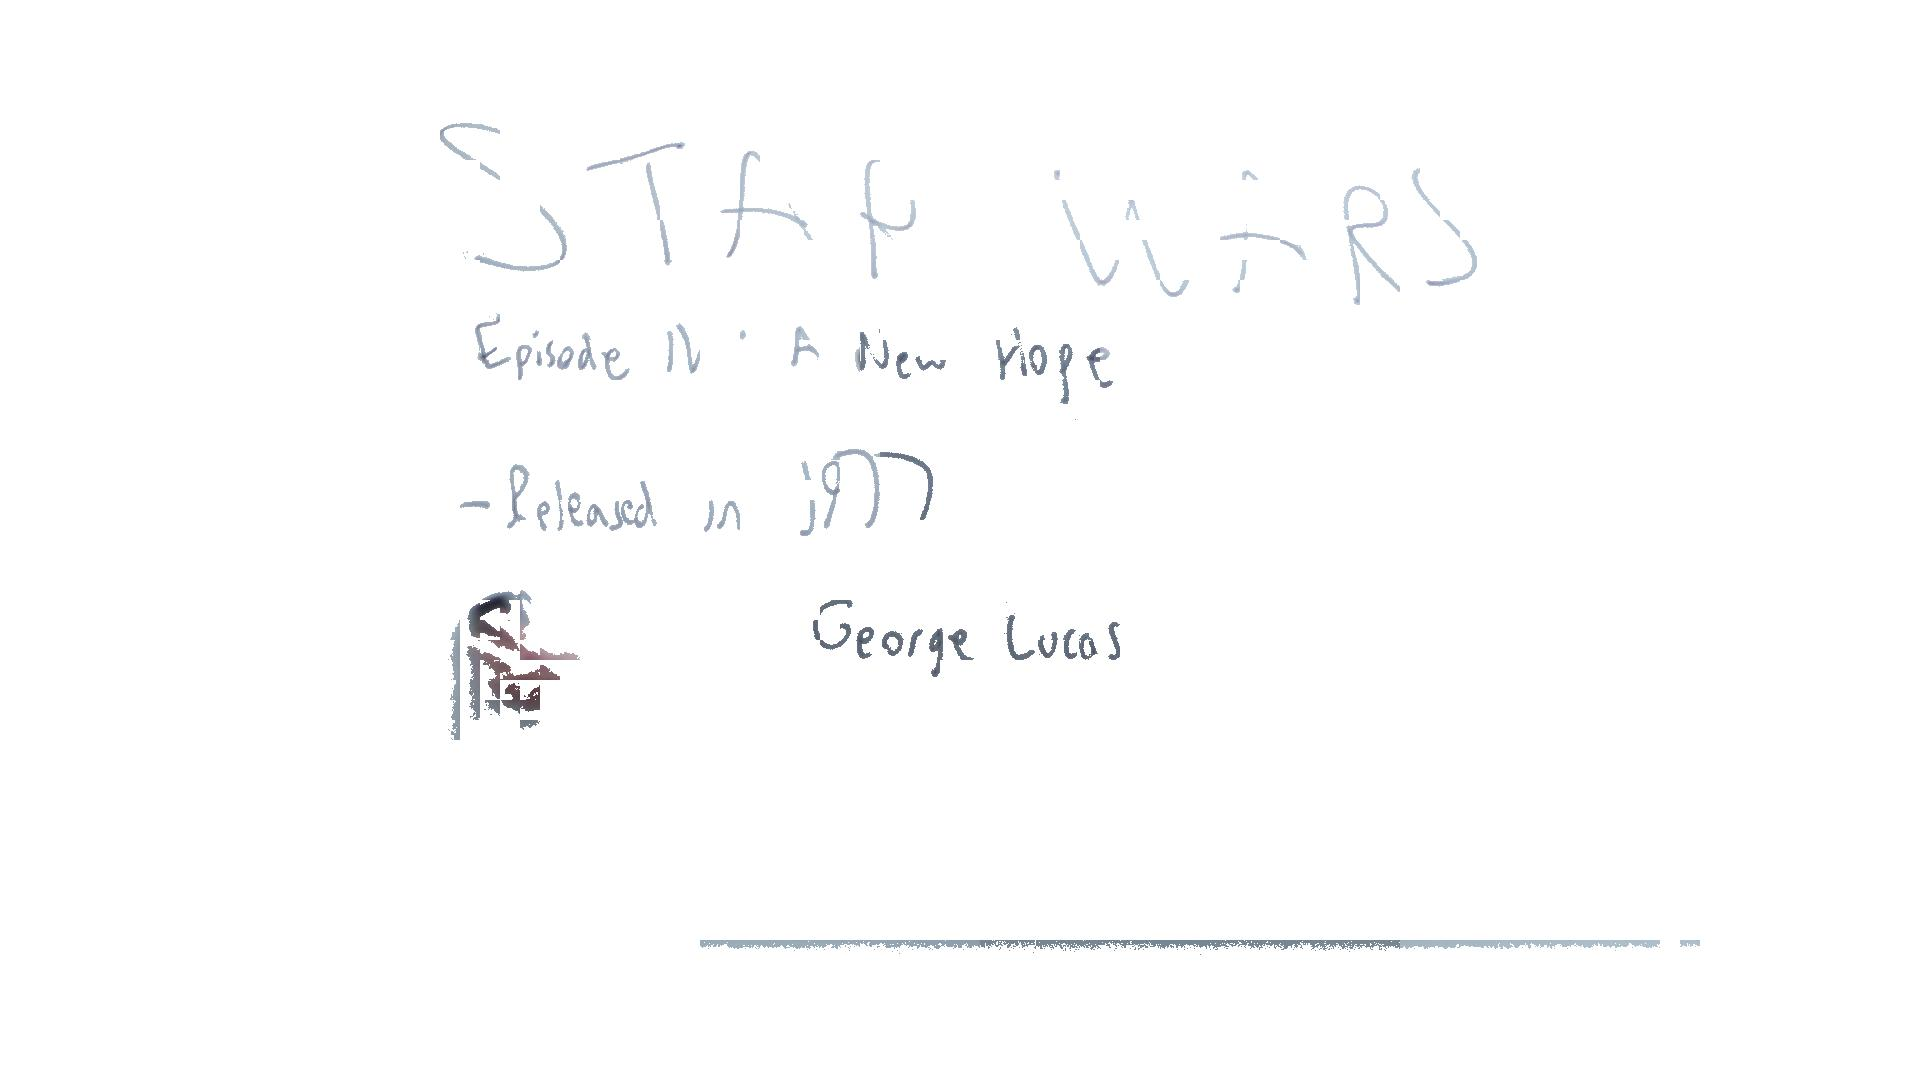 STAR WARS
Episode IV: A New Hope
-Released in 1977
George Lucas